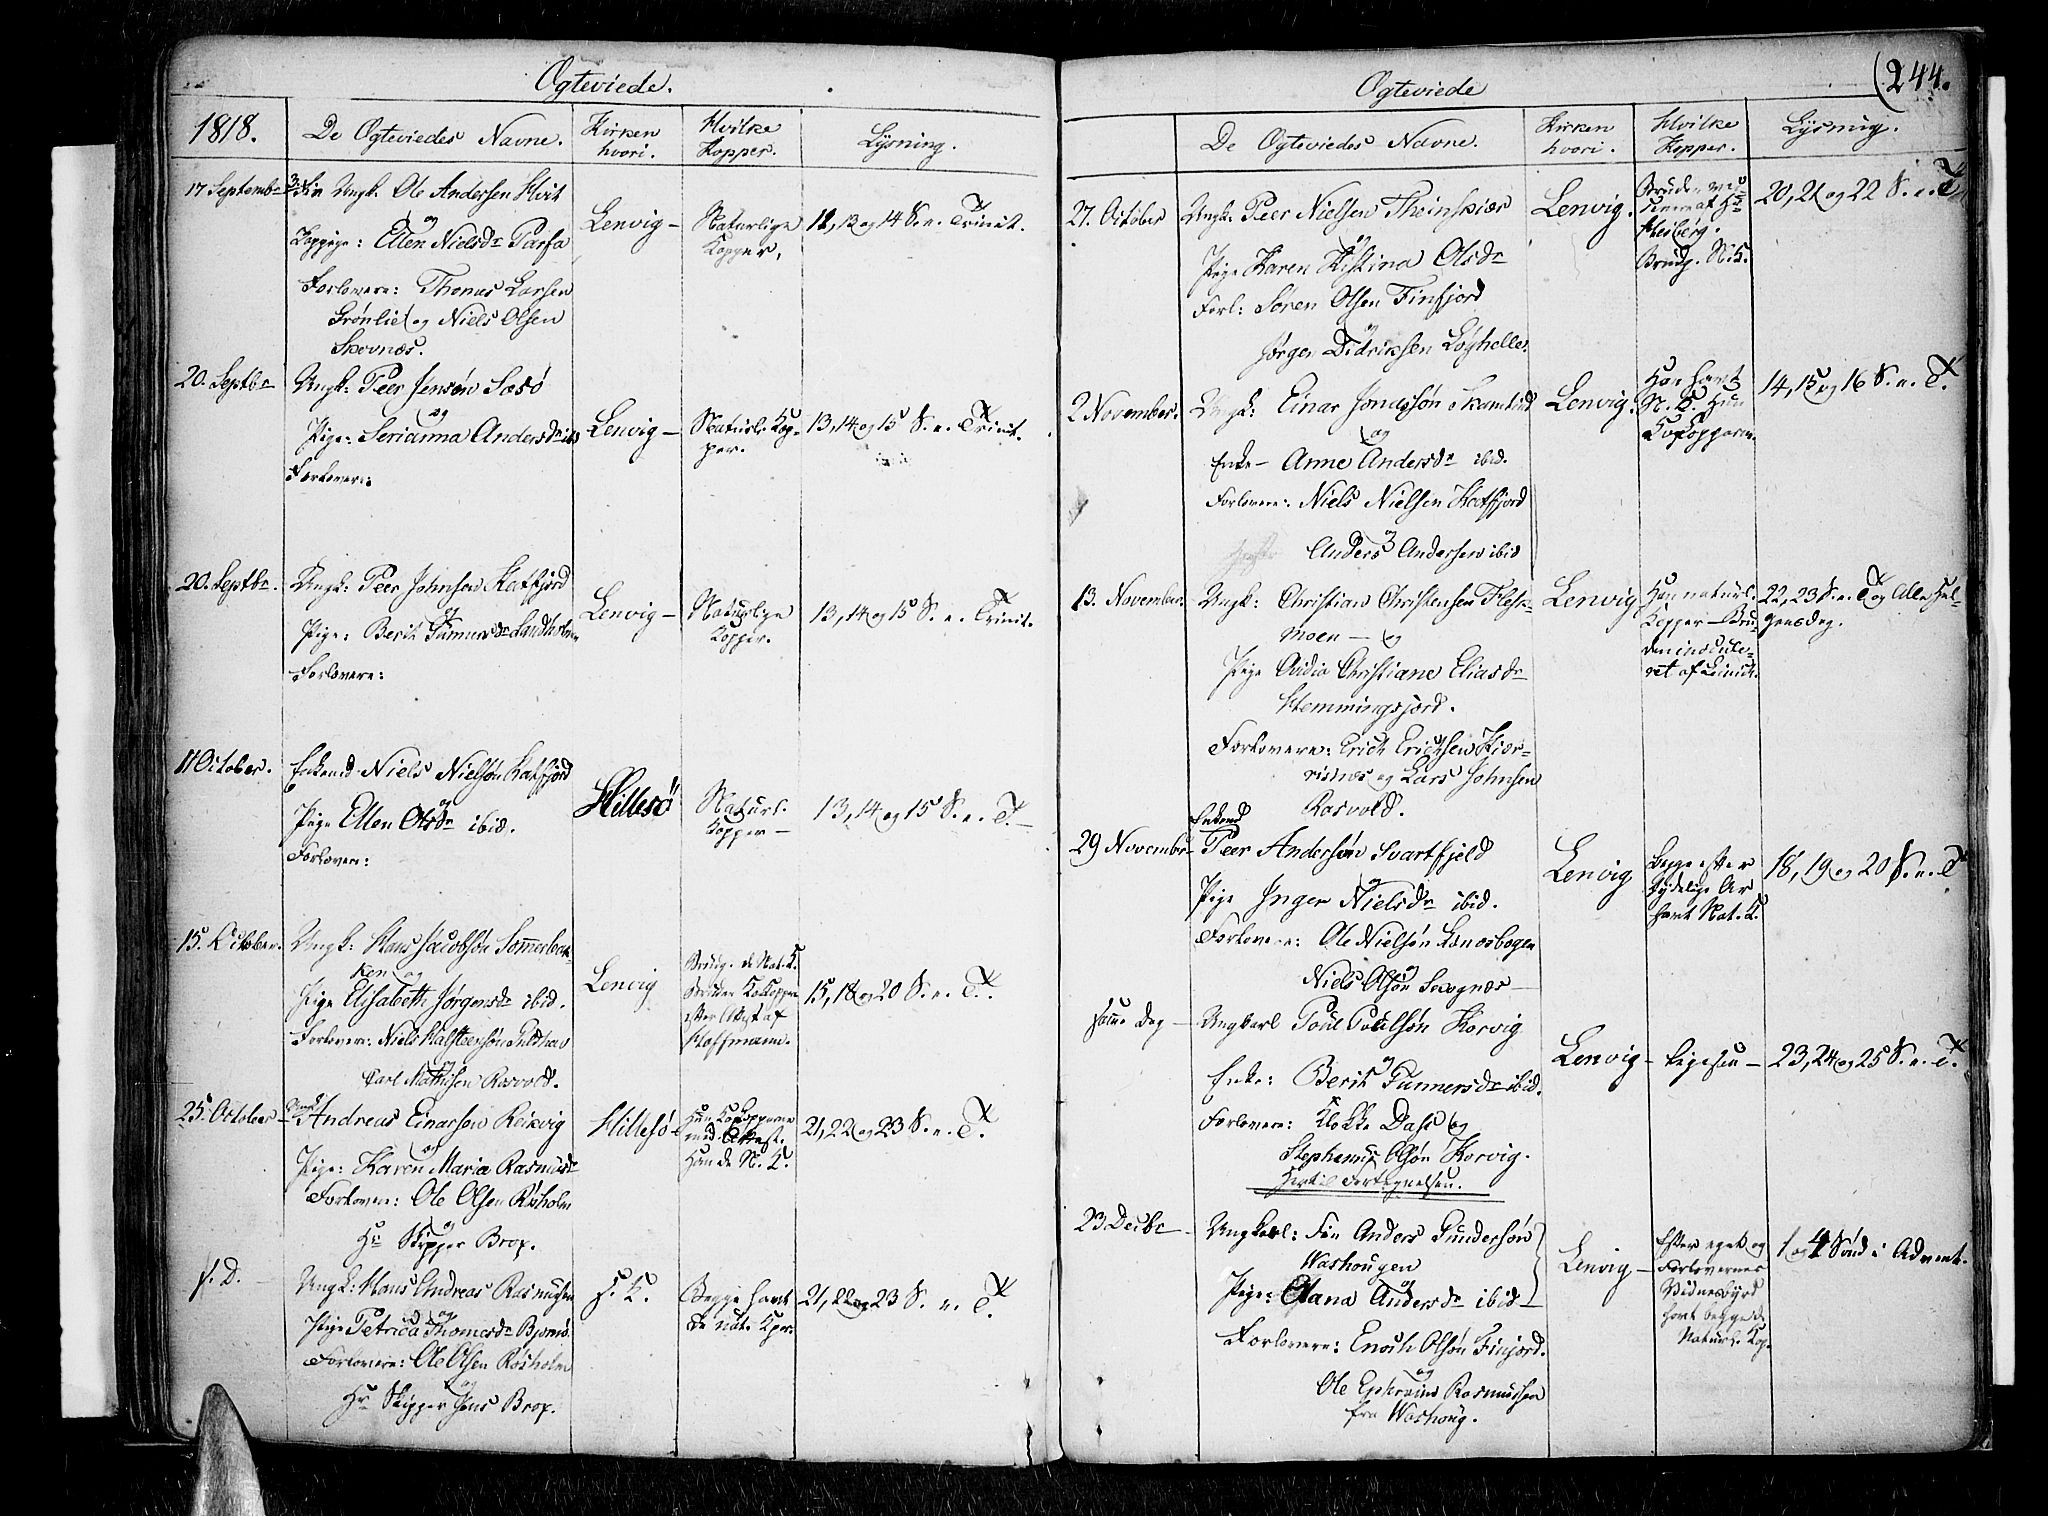 Ogteviede.
1818.
De Ogteviedes Navne.
Kirken hvori.
Hvilke Kopper.
Lysning.
17 Septembr
Fin Ungk. Ole Andersen Hvit
og
Ellen Nielsdr Parfa
Forlovere: Thomas Larsen
Grönlie og Niels Olsen
Skovnæs.
Lenvig
Naturlige
Kopper.
12, 13 og 14 S. e. Trinit.
20. Septbr
Ungk: Peer Jensön Sæsö
og
Pige: Serianna Andersdr ibd
Forlovere:
Lenvig
Naturl. Kop-
per.
13, 14 og 15 S. e. Trinit.
20. Septbr.
Ungk: Peer Johnsen Katfjord
og
Pige: Berit Gunnersdr
Forlovere:
Lenvig
Naturlige
Kopper.
13, 14 og 15 S. e. Trinit.
11 October.
Enkemd Niels Nielsön Katfjord
og
Pige Ellen Olsdr ibid.
Forlovere:
Hillesö
Naturl.
Kopper
13, 14 og 15 S. e. T.
15. October.
Ungk: Hans Jacobsön Sommerbak-
ken og
Pige Elisabeth Jörgensdr ibid.
Forlovere: Niels Halsteensön Guldhav
og
Carl Mathisen Rosvold.
Lenvig
Brudg. de Nat. K.
Bruden Kokopper
efter Attest af
Hoffmann.
15, 18 og 20 S. e. T.
25. October
Andreas Einarsen Reikvig
og
Pige: Karen Maria Rasmusdr
Forlovere: Ole Olsen Rösholm
og
Hr Skipper Brox.
Hillesö
Hun Kokopperne
med Attest.
Han de N. K.
21, 22 og 23 S. e. T.
s. D.
Ungk: Hans Andreas Rasmusen
og
Pige Petrica Thomesdr Bjornö.
Forlovere: Ole Olsen Rösholm
og
Hr Skipper Jens Brox.
s. K.
Begge havt
de nat. Kper
21, 22 og 23 S. e. T.
Ogteviede
244.
De Ogteviedes Navne.
Kirken hvori.
Hvilke Kopper.
Lysning.
27. October
Ungk: Peer Nielsen Theinskiær
og
Pige Karen Kistina Olsdr
Forl: Sören Olsen Finfjord
og
Jørgen Didriksen Løghelle.
Lenvig.
Bruden vac-
cineret af Hr
Heiberg.
Brudg. N. K.
20, 21 og 22 S. e. T.
2 November.
Ungk: Einar Jonassön
og
Enke Anne Andersdr ibid.
Forlovere: Niels Nielsen Katfjord
og
Anders Andersen ibid
Lenvig.
Han havt
N. K. Hun
Kokopperne.
14, 15 og 16 S. e. T.
13. November.
Ungk: Christian Christensen Flesk-
moen og
Pige Christiane Eliasdr
Hemmingsjord.
Forlovere: Erich Erichsen Kjær-
resnæs og Lars Johnsen
Rosvold.
Lenvig
Han naturl.
Kopper Bru-
den inocule-
ret af
22, 23 S. e. T. og Alle Hel-
gensdag.
29 Novembr
Enkemd
Peer Andersön Svartfjeld
og
Pige Inger Nielsdr ibid.
Forlovere: Ole Nielsön Kanosbogen
og
Niels Olsön Skognæs
Lenvig
Begge efter
tydelige Ar
havt Nat. K.
18, 19 og 20 S. e. T.
samme Dag
Ungkarl Poul Poulsön Korvig
og
Enke: Berit Gunnersdr ibid.
Forlovere: Klokker Dass og
Stephanus Olsön Korvig.
Hertil Fortegnelsen.
Lenvig
ligesaa
23, 24 og 25 S. e. T.
23 Decbr
Ungkarl: Fin Anders Gundersön
Washougen
og
Pige: Elana Andersdr ibid
Forlovere: Enoch Olsön Finjord.
og
Ole Ephraim Rasmussen
fra Washoug.
Lenvig
Efter eget og
Forlovernes
Vidnesbyrd
havt begge de
Naturl. Kop.
1 og 4 Sönd i Advent.